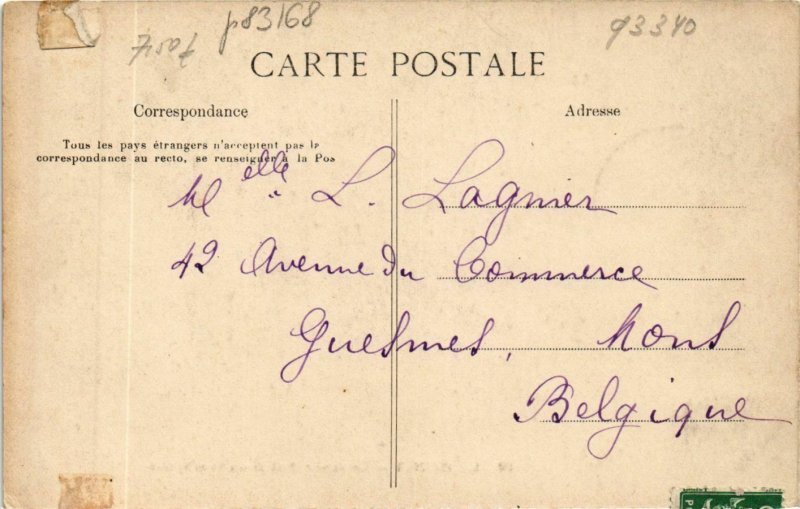 p83168
93340
CARTE POSTALE
Correspondance
Adresse
Tous les pays étrangers n'acceptent pas la
correspondance au recto, se renseigner à la Pos
Melle L. Lagnier
42 Avenue du Commerce
Guesmes, Mons
Belgique